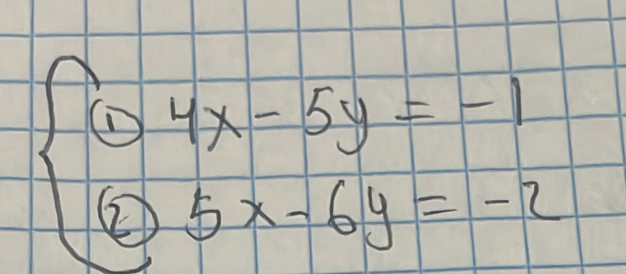 ① 4x - 5y = -1
② 5x - 6y = -2